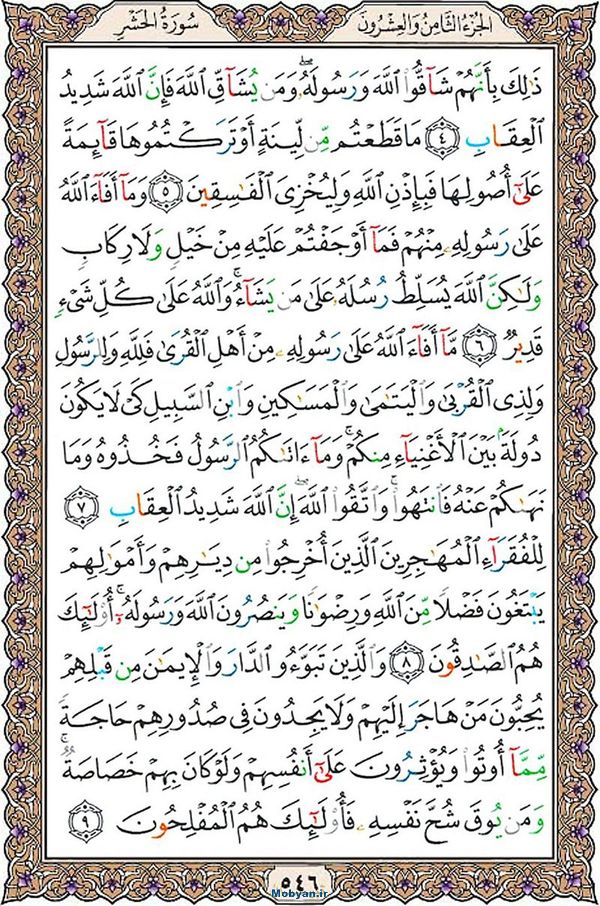 الجزء الثامن والعشرون
سورة الحشر
ذَٰلِكَ بِأَنَّهُمْ شَآقُّوا۟ ٱللَّهَ وَرَسُولَهُۥ ۖ وَمَن يُشَآقِّ ٱللَّهَ فَإِنَّ ٱللَّهَ شَدِيدُ
ٱلْعِقَابِ ٤ مَا قَطَعْتُم مِّن لِّينَةٍ أَوْ تَرَكْتُمُوهَا قَآئِمَةً
عَلَىٰٓ أُصُولِهَا فَبِإِذْنِ ٱللَّهِ وَلِيُخْزِىَ ٱلْفَـٰسِقِينَ ٥ وَمَآ أَفَآءَ ٱللَّهُ
عَلَىٰ رَسُولِهِۦ مِنْهُمْ فَمَآ أَوْجَفْتُمْ عَلَيْهِ مِنْ خَيْلٍ وَلَا رِكَابٍ
وَلَـٰكِنَّ ٱللَّهَ يُسَلِّطُ رُسُلَهُۥ عَلَىٰ مَن يَشَآءُ ۚ وَٱللَّهُ عَلَىٰ كُلِّ شَىْءٍ
قَدِيرٌ ٦ مَّآ أَفَآءَ ٱللَّهُ عَلَىٰ رَسُولِهِۦ مِنْ أَهْلِ ٱلْقُرَىٰ فَلِلَّهِ وَلِلرَّسُولِ
وَلِذِى ٱلْقُرْبَىٰ وَٱلْيَتَـٰمَىٰ وَٱلْمَسَـٰكِينِ وَٱبْنِ ٱلسَّبِيلِ كَىْ لَا يَكُونَ
دُولَةًۢ بَيْنَ ٱلْأَغْنِيَآءِ مِنكُمْ ۚ وَمَآ ءَاتَىٰكُمُ ٱلرَّسُولُ فَخُذُوهُ وَمَا
نَهَىٰكُمْ عَنْهُ فَٱنتَهُوا۟ ۚ وَٱتَّقُوا۟ ٱللَّهَ ۖ إِنَّ ٱللَّهَ شَدِيدُ ٱلْعِقَابِ ٧
لِلْفُقَرَآءِ ٱلْمُهَـٰجِرِينَ ٱلَّذِينَ أُخْرِجُوا۟ مِن دِيَـٰرِهِمْ وَأَمْوَٰلِهِمْ
يَبْتَغُونَ فَضْلًا مِّنَ ٱللَّهِ وَرِضْوَٰنًا وَيَنصُرُونَ ٱللَّهَ وَرَسُولَهُۥٓ ۚ أُو۟لَـٰٓئِكَ
هُمُ ٱلصَّـٰدِقُونَ ٨ وَٱلَّذِينَ تَبَوَّءُو ٱلدَّارَ وَٱلْإِيمَـٰنَ مِن قَبْلِهِمْ
يُحِبُّونَ مَنْ هَاجَرَ إِلَيْهِمْ وَلَا يَجِدُونَ فِى صُدُورِهِمْ حَاجَةً
مِّمَّآ أُوتُوا۟ وَيُؤْثِرُونَ عَلَىٰٓ أَنفُسِهِمْ وَلَوْ كَانَ بِهِمْ خَصَاصَةٌ ۚ
وَمَن يُوقَ شُحَّ نَفْسِهِۦ فَأُو۟لَـٰٓئِكَ هُمُ ٱلْمُفْلِحُونَ ٩
٥٤٦
Mobyan.ir